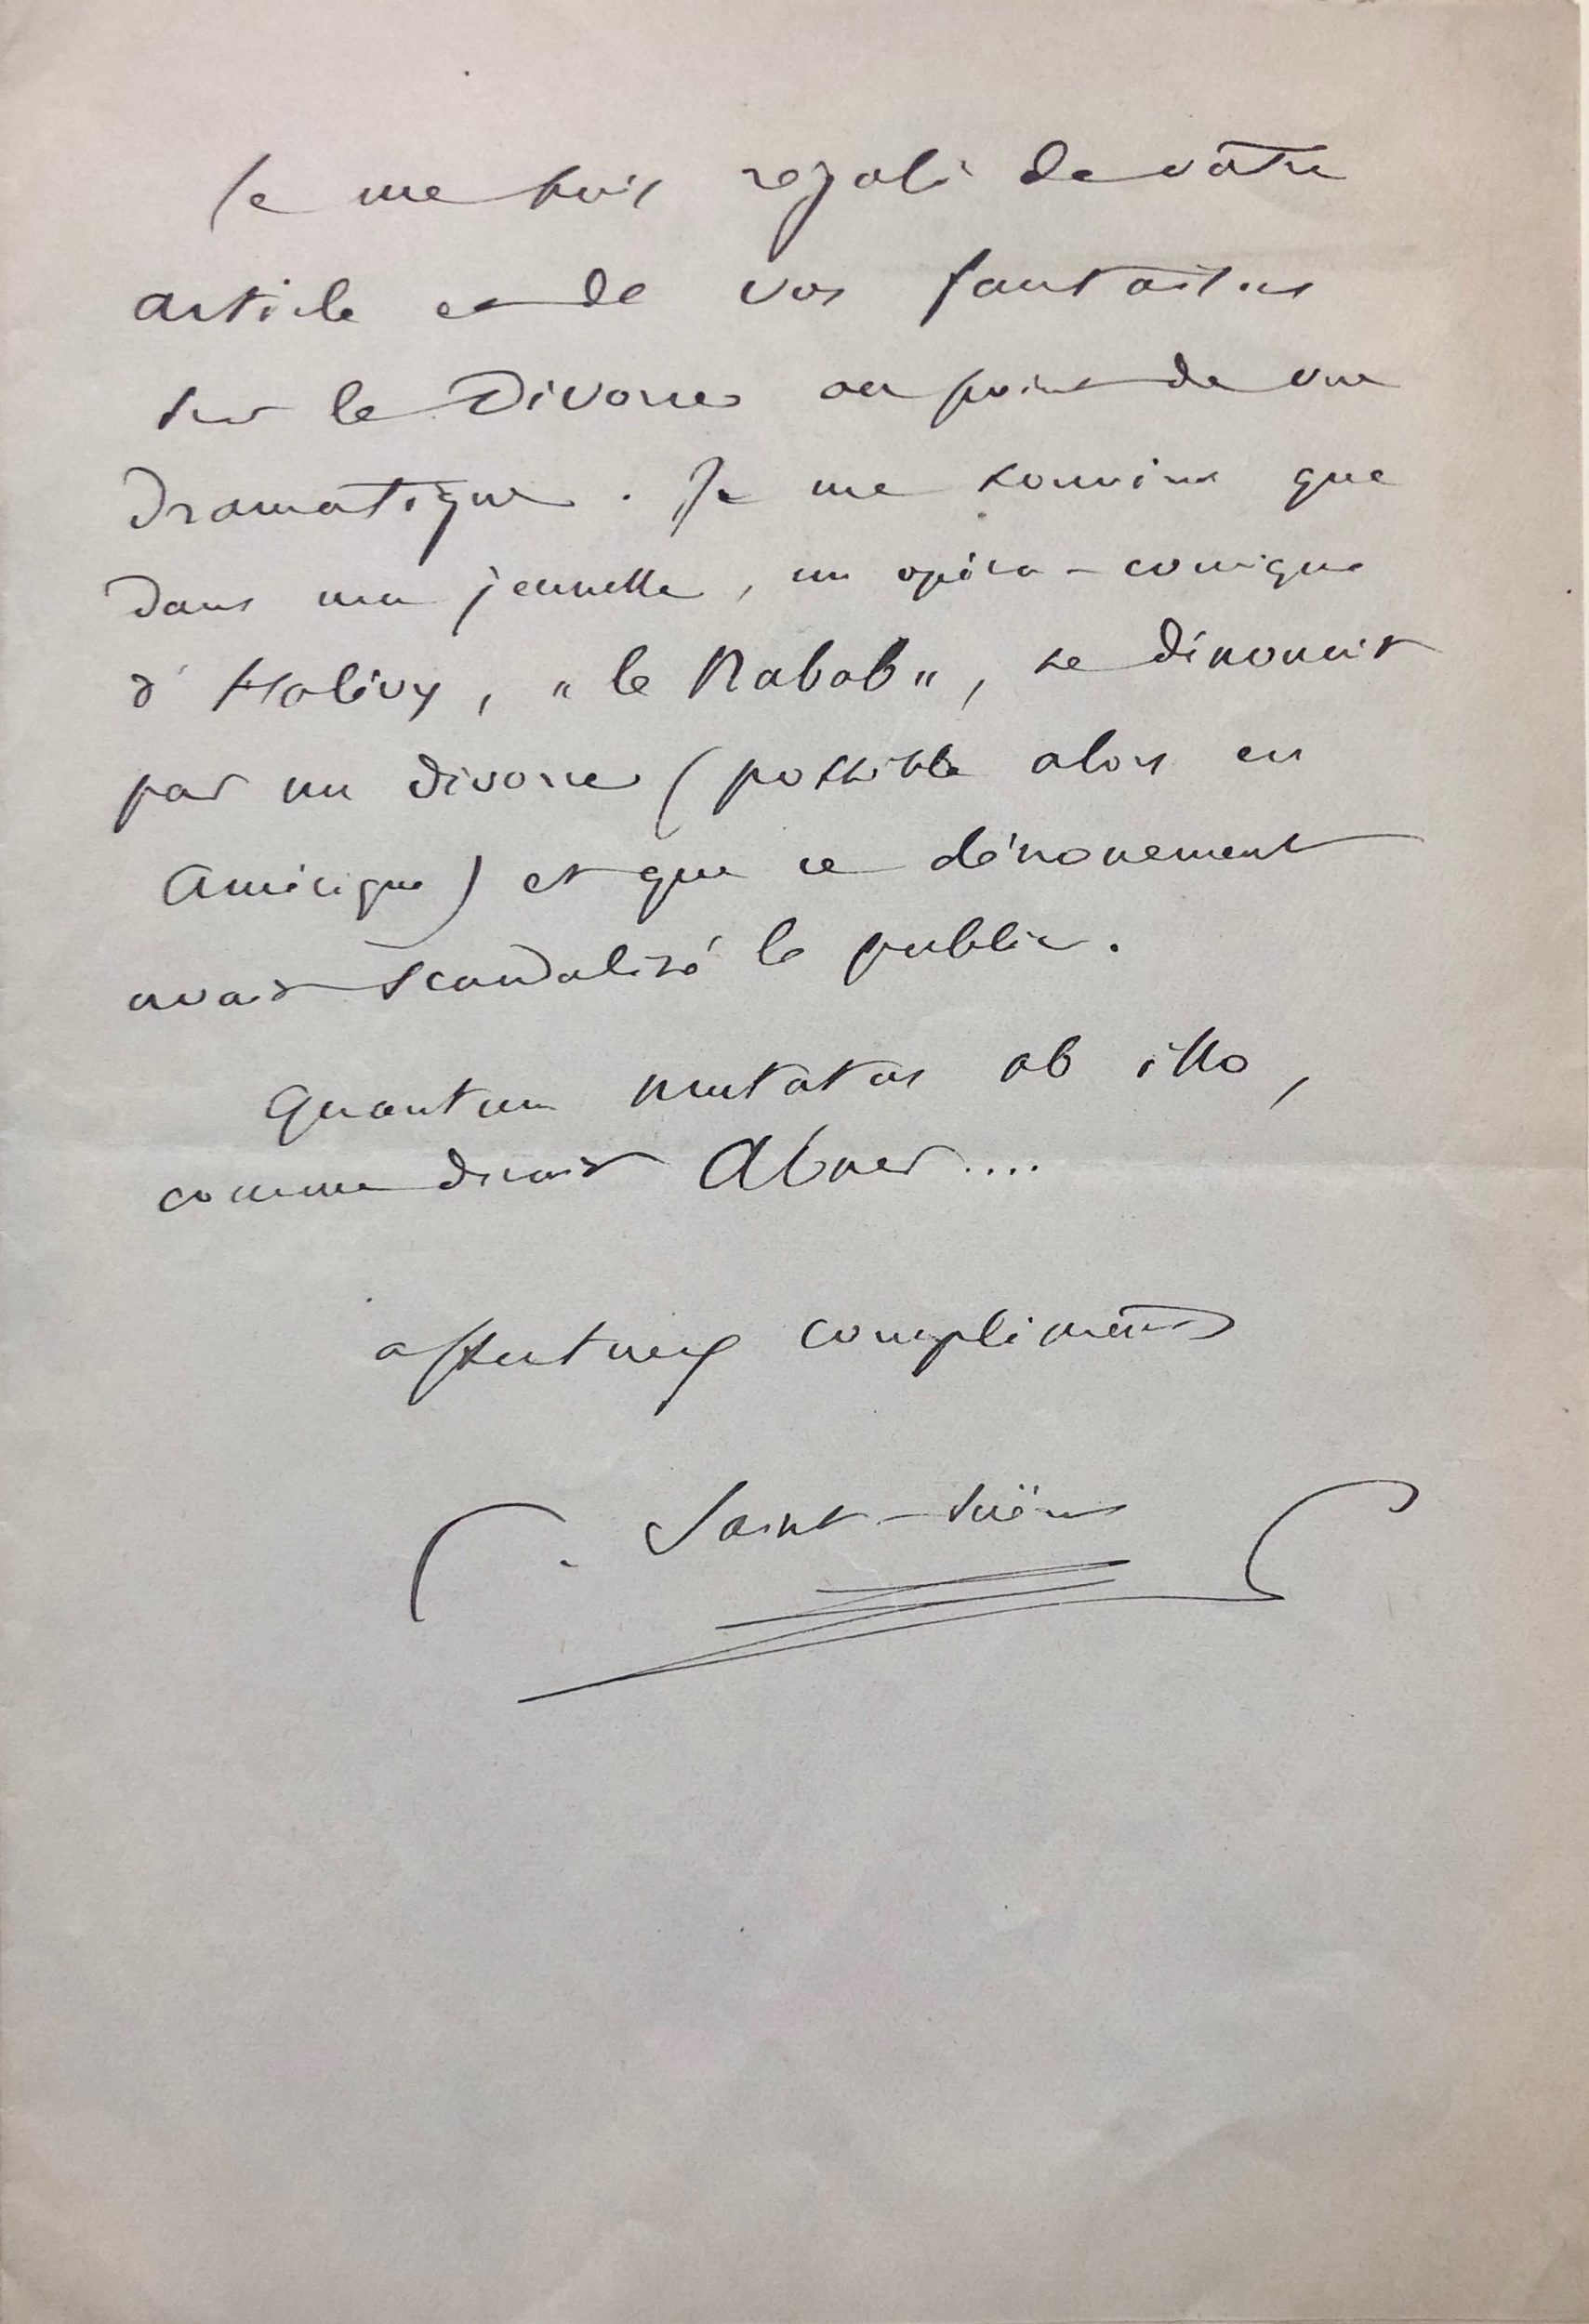 Je me suis régalé de votre
article et de vos fantaisies
sur le Divorce au point de vue
Dramatique. Je me souviens que
dans ma jeunesse, un opéra-comique
d'Halévy, "le Nabab", se dénouait
par un divorce (possible alors en
Amérique) et que ce dénouement
avait scandalisé le public.
Quantum mutatus ab illo,
comme dirait Abner....
affectueux compliments
C. Saint-Saëns